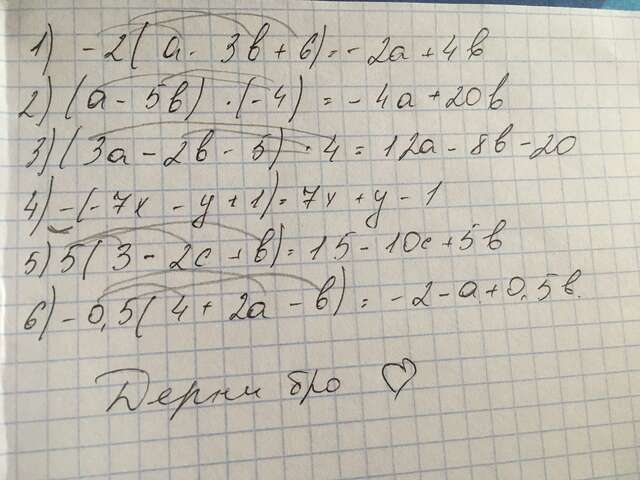 1) -2(a - 3b + 6) = -2a + 4b
2) (a - 5b) · (-4) = -4a + 20b
3) (3a - 2b - 5) · 4 = 12a - 8b - 20
4) -(-7x - y + 1) = 7x + y - 1
5) 5(3 - 2c + b) = 15 - 10c + 5b
6) -0,5(4 + 2a - b) = -2 - a + 0,5b.
Держи бро ♡